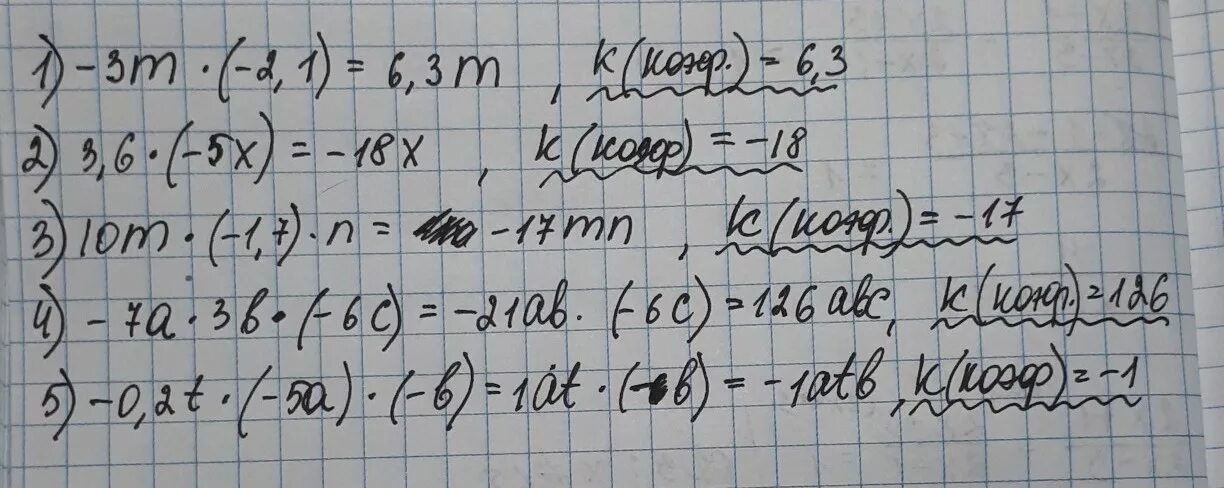 1) -3m · (-2,1) = 6,3m , k(коэф.) = 6,3
2) 3,6 · (-5x) = -18x , k(коэф) = -18
3) 10m · (-1,7) · n = -17mn , k(коэф.) = -17
4) -7a · 3b · (-6c) = -21ab · (-6c) = 126abc, k(коэф.) = 126
5) -0,2t · (-5a) · (-b) = 1at · (-b) = -1atb, k(коэф) = -1